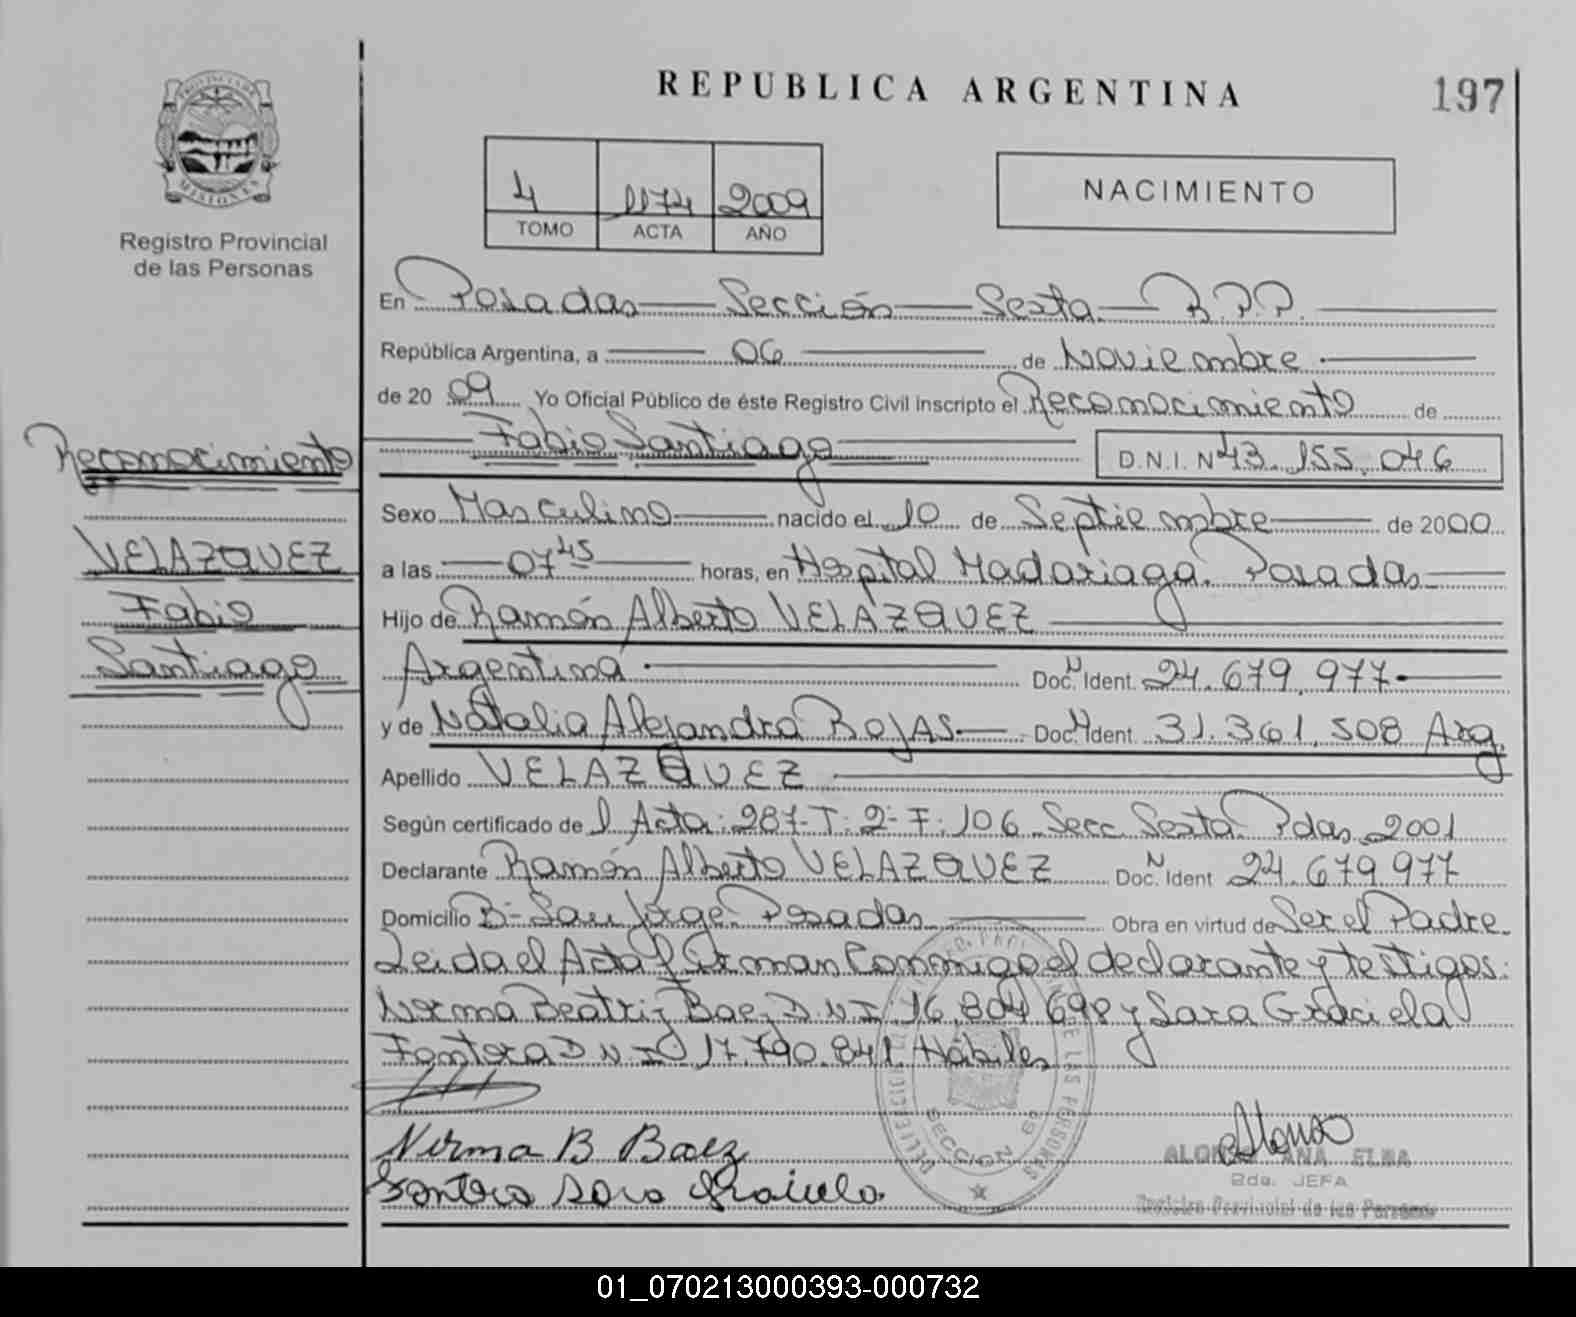 REPUBLICA ARGENTINA
197
PROVINCIA DE
MISIONES
Registro Provincial
de las Personas
4 1174 2009
TOMO ACTA AÑO
NACIMIENTO
En Posadas Sección Sexta R.P.P.
República Argentina, a 06 de Noviembre
de 2009 Yo Oficial Público de éste Registro Civil inscripto el Reconocimiento de
Fabio Santiago D.N.I. Nº 43.155.046
Reconocimiento
VELAZQUEZ
Fabio
Santiago
Sexo Masculino nacido el 10 de Septiembre de 2000
a las 07 45 horas, en Hospital Madariaga. Posadas
Hijo de Ramón Alberto VELAZQUEZ
Argentina Doc. N Ident. 24.679.977
y de Natalia Alejandra ROJAS Doc. N Ident. 31.361.508 Arg.
Apellido VELAZQUEZ
Según certificado de l Acta: 287-T: 2-F: 106 Secc. Sexta Pdas. 2001
Declarante Ramón Alberto VELAZQUEZ Doc. N Ident 24.679.977
Domicilio Bº San Jorge. Posadas Obra en virtud de Ser el Padre.
Leida el Acta firman Conmigo el declarante y testigos:
Norma Beatriz Baez D.N.I. 16.804.698 y Sara Graciela
Fontora D N I 17.790.841. Hábiles
Norma B Baez
Sara Graciela
SECCION 6a
DE LAS PERSONAS
Alonso
ALONSO ANA ELBA
2da. JEFA
Registro Provincial de las Personas
01_070213000393-000732